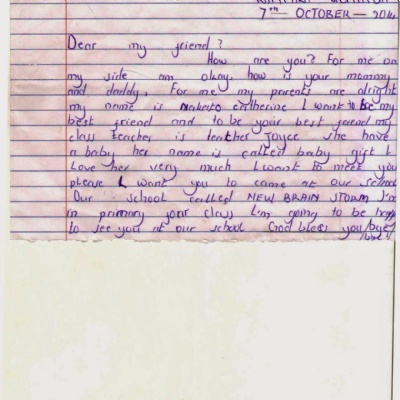 7TH OCTOBER - 2014
Dear my friend?
How are you? For me on
my side am okay, how is your mommy
and daddy, For me my parents are alright
my name is Nakato catherine I want to be my
best friend and to be your best friend my
class teacher is teather Joyce she have
a baby her name is called baby girl I
Love her very much I want to meet you
please I want you to came at our school
Our school called NEW BRAIN STORM I'm
in primary four class I'm going to be happy
to see you at our school God bless you/bye/